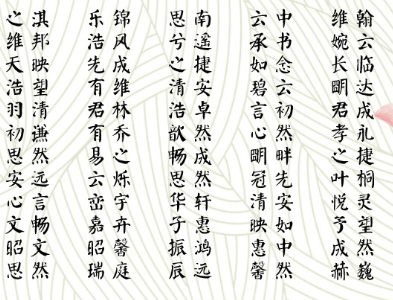 翰云临达成礼捷桐灵望然巍
维婉长明君孝之叶悦予成赫
中书念云初然畔先安如中然
云承如碧言心明冠清映惠馨
南遥捷安卓然成然轩惠鸿远
思兮之清浩歆畅思华子振辰
锦风成维林乔之烁宇卉馨庭
乐浩先有君有易云峦嘉昭瑞
淇邦映望清谦然远言畅文然
之维天浩羽初思安心文昭思